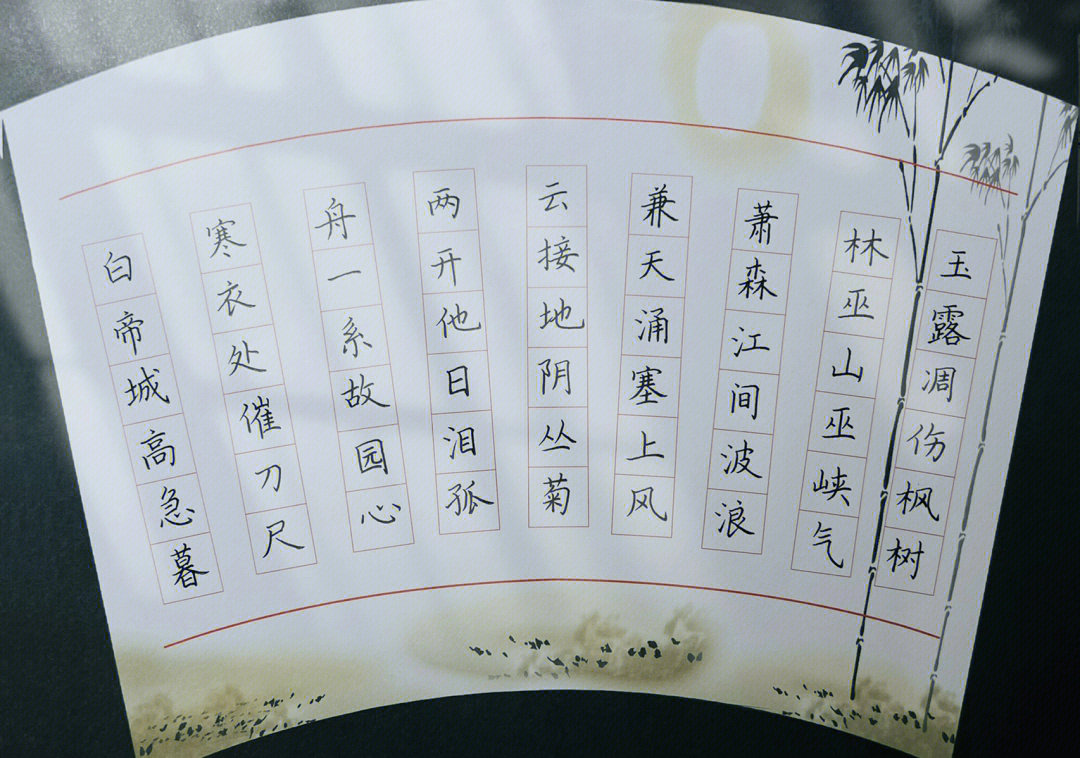 玉露凋伤枫树
林巫山巫峡气
萧森江间波浪
兼天涌塞上风
云接地阴丛菊
两开他日泪孤
舟一系故园心
寒衣处催刀尺
白帝城高急暮